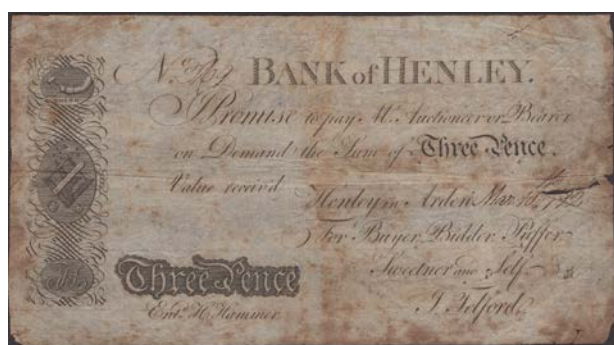 No. BANK of HENLEY.
I Promise to pay Mr. Auctioneer or Bearer
on Demand the Sum of Three Pence.
Value receiv'd
Henley in Arden
For Buyer, Bidder, Puffer,
Sweetner and Self
Three Pence
Entd. H. Hammer
J. Telford